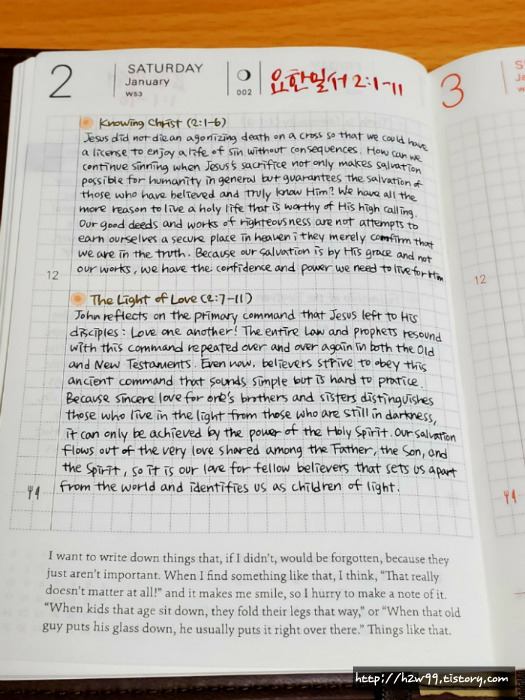 2
SATURDAY
January
W53
002
요한일서 2:1-11
3
Knowing Christ (2:1-6)
Jesus did not die an agonizing death on a cross so that we could have
a license to enjoy a life of sin without consequences. How can we
continue sinning when Jesus's sacrifice not only makes salvation
possible for humanity in general but guarantees the salvation of
those who have believed and truly know Him? We have all the
more reason to live a holy life that is worthy of His high calling.
Our good deeds and works of righteousness are not attempts to
earn ourselves a secure place in heaven; they merely confirm that
we are in the truth. Because our salvation is by His grace and not
our works, we have the confidence and power we need to live for Him
12
12
The Light of Love (2:7-11)
John reflects on the primary command that Jesus left to His
disciples: Love one another! The entire Law and prophets resound
with this command repeated over and over again in both the Old
and New Testaments. Even now, believers strive to obey this
ancient command that sounds simple but is hard to pratice.
Because sincere love for one's brothers and sisters distinguishes
those who live in the light from those who are still in darkness,
it can only be achieved by the power of the Holy Spirit. Our salvation
flows out of the very love shared among the Father, the Son, and
the Spirit, so it is our love for fellow believers that sets us apart
from the world and identifies us as children of light.
I want to write down things that, if I didn't, would be forgotten, because they
just aren't important. When I find something like that, I think, "That really
doesn't matter at all!" and it makes me smile, so I hurry to make a note of it.
"When kids that age sit down, they fold their legs that way," or "When that old
guy puts his glass down, he usually puts it right over there." Things like that.
http://h2w99.tistory.com